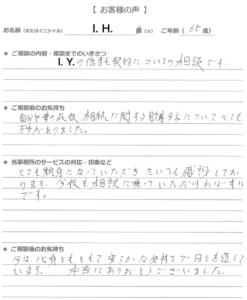 【 お客様の声 】
お名前 (またはイニシャル) I. H. 様 ご年齢 ( 65 歳)
◆ ご相談の内容・相談までのいきさつ
I. Y. の信託契約についての相談です。
◆ ご相談前のお気持ち
自分や妻の 相続に関する について とても
不 がありました。
◆ 当事務所のサービスの対応・印象など
とても親身になっていただき たいへん感謝してお
ります。今後も相談に乗っていただければ幸い
です。
◆ ご相談後のお気持ち
今は心身ともども安らかな気持で日々を過して
います。 本当にありがとうございました。